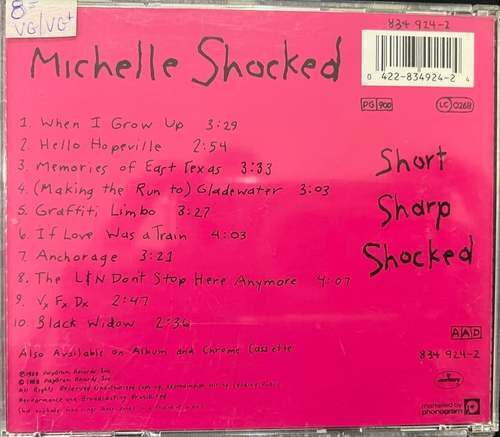 8=
VG/VG+
834 924-2
Michelle Shocked
0 422-834924-2 4
PG 900
LC 0268
1. When I Grow Up 3:29
2. Hello Hopeville 2:54
3. Memories of East Texas 3:33
4. (Making the Run to) Gladewater 3:03
5. Graffiti Limbo 3:27
6. If Love Was a Train 4:03
7. Anchorage 3:21
8. The L&N Don't Stop Here Anymore 4:07
9. Vx Fx Dx 2:47
10. Black Widow 2:36
Short
Sharp
Shocked
Also Available on Album and Chrome Cassette
AAD
834 924-2
℗1988 PolyGram Records Inc.
©1988 PolyGram Records Inc.
All Rights Reserved. Unauthorized Copying, Reproduction, Hiring, Lending, Public
Performance and Broadcasting Prohibited.
mercury
marketed by
phonogram